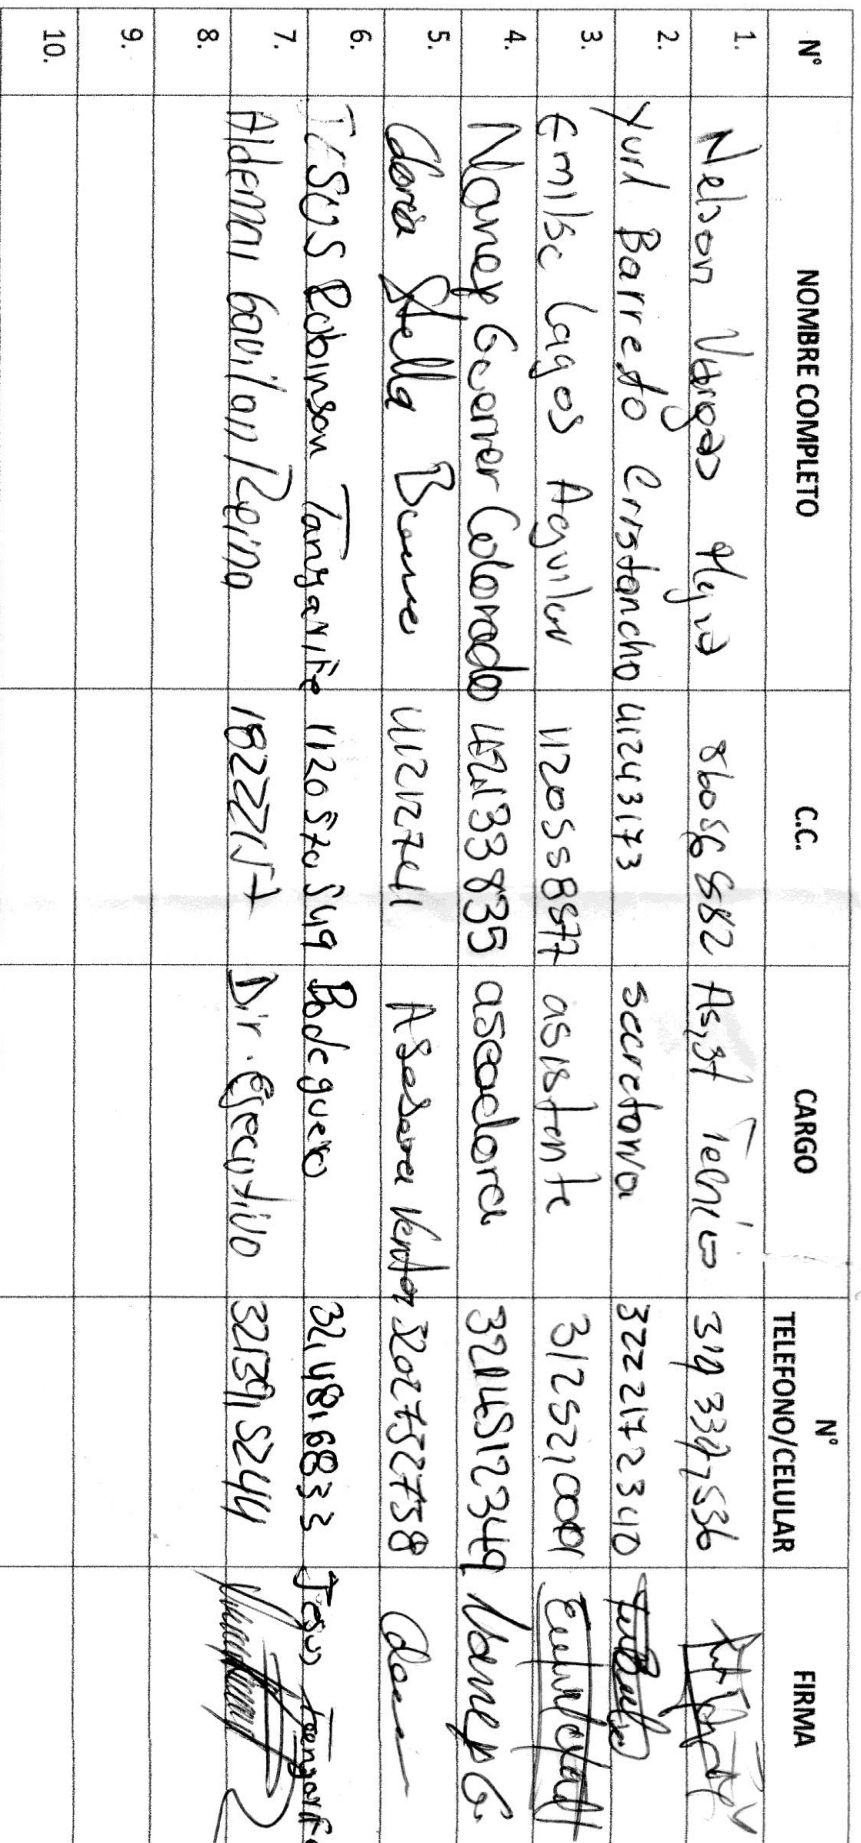 N° NOMBRE COMPLETO C.C. CARGO N° TELEFONO/CELULAR FIRMA
1. Nelson Vargas 86056882 Asist Tecnico
2. Yuri Barreto Cristancho 41243173 secretaria 3222172340
3. Emilse Lagos Aguilar 1120558577 asistente 312521000
4. Nancy Guerrer Colorado 42133835 aseadora 3214512349 Nancy G.
5. Gloria Stella Bueno 41212741 Asesora Vendor 3202752758
6. JESUS Robinson Tangarife 1120570549 Bodeguero 3214816833 Jesus Tangarife
7. Aldemar Gavilan Reina 18222157 Dir. Ejecutivo
8.
9.
10.